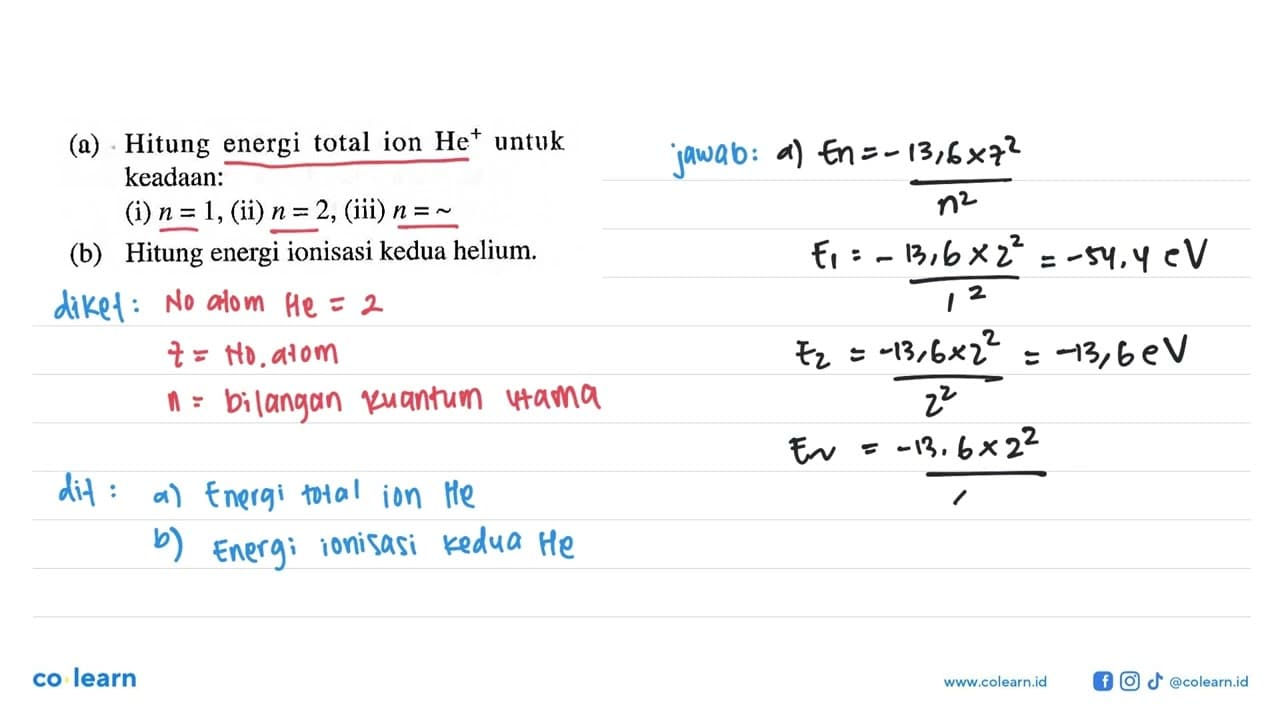 (a) Hitung energi total ion He⁺ untuk
keadaan:
(i) n = 1, (ii) n = 2, (iii) n = ~
(b) Hitung energi ionisasi kedua helium.
diket: No atom He = 2
z = No. atom
n = bilangan kuantum utama
dit: a) Energi total ion He
b) Energi ionisasi kedua He
jawab: a) En = - 13,6 × z²
n²
E₁ = - 13,6 × 2² = -54,4 eV
1²
E₂ = -13,6 × 2² = -13,6 eV
2²
E~ = -13,6 × 2²
co learn
www.colearn.id
@colearn.id